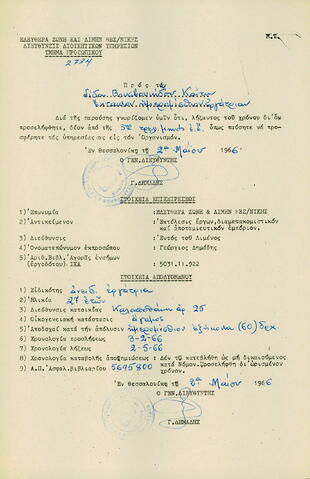 ΕΛΕΥΘΕΡΑ ΖΩΝΗ ΚΑΙ ΛΙΜΗΝ ΘΕΣ/ΝΙΚΗΣ
ΔΙΕΥΘΥΝΣΙΣ ΔΙΟΙΚΗΤΙΚΩΝ ΥΠΗΡΕΣΙΩΝ
ΤΜΗΜΑ ΠΡΟΣΩΠΙΚΟΥ
2784
Πρός τήν
Ἐνταῦθα
Διά τῆς παρούσης γνωρίζομεν ὑμῖν ὅτι, λήξαντος τοῦ χρόνου δι'ὅν
προσελήφθητε, δέον ἀπό τῆς 3ης ὅπως παύσητε νά προσ-
φέρητε τάς ὑπηρεσίας σας εἰς τόν Ὀργανισμόν.
Ἐν Θεσσαλονίκῃ τῇ 2ᾳ Μαΐου 1966
Ὁ ΓΕΝ.ΔΙΕΥΘΥΝΤΗΣ
Γ.ΔΗΜΑΔΗΣ
ΣΤΟΙΧΕΙΑ ΕΠΙΧΕΙΡΗΣΕΩΣ
1) Ἐπωνυμία : ΕΛΕΥΘΕΡΑ ΖΩΝΗ & ΛΙΜΗΝ ΘΕΣ/ΝΙΚΗΣ
2) Ἀντικείμενον : Ἐκτέλεσις ἔργων, διαμετακομιστικόν
καί ἀποταμιευτικόν ἐμπόριον.
3) Διεύθυνσις : Ἐντός τοῦ Λιμένος
4) Ὀνοματεπώνυμον ἐκπροσώπου : Γεώργιος Δημάδης
5) Ἀριθ.Βιβλ.Ἀγορᾶς ἐνσήμων
(ἐργοδότου).ΙΚΑ : 5031.11.922
ΣΤΟΙΧΕΙΑ ΑΠΟΛΥΟΜΕΝΟΥ
1) Εἰδικότης ἀνειδ. ἐργάτρια
2) Ἡλικία 27 ἐτῶν
3) Διεύθυνσις κατοικίας ἀρ. 25
4) Οἰκογενειακή κατάστασις ἄγαμος
5) Ἀποδοχαί κατά τήν ἀπόλυσιν ἡμερομίσθιον ἑξήκοντα (60) δρχ.
6) Χρονολογία προσλήψεως 3-2-66
7) Χρονολογία λήξεως 2-5-66
8) Χρονολογία καταβολῆς ἀποζημιώσεως : Δέν τῷ κατεβλήθη ὡς μή δικαιούμενος
κατά Νόμον.Προσελήφθη δι'ὡρισμένον
χρόνον.
9) Α.Π.Ἀσφαλ.Βιβλιαρίου 5695800
Ἐν Θεσσαλονίκῃ τῇ 2ᾳ Μαΐου 1966
Ὁ ΓΕΝ.ΔΙΕΥΘΥΝΤΗΣ
Γ.ΔΗΜΑΔΗΣ